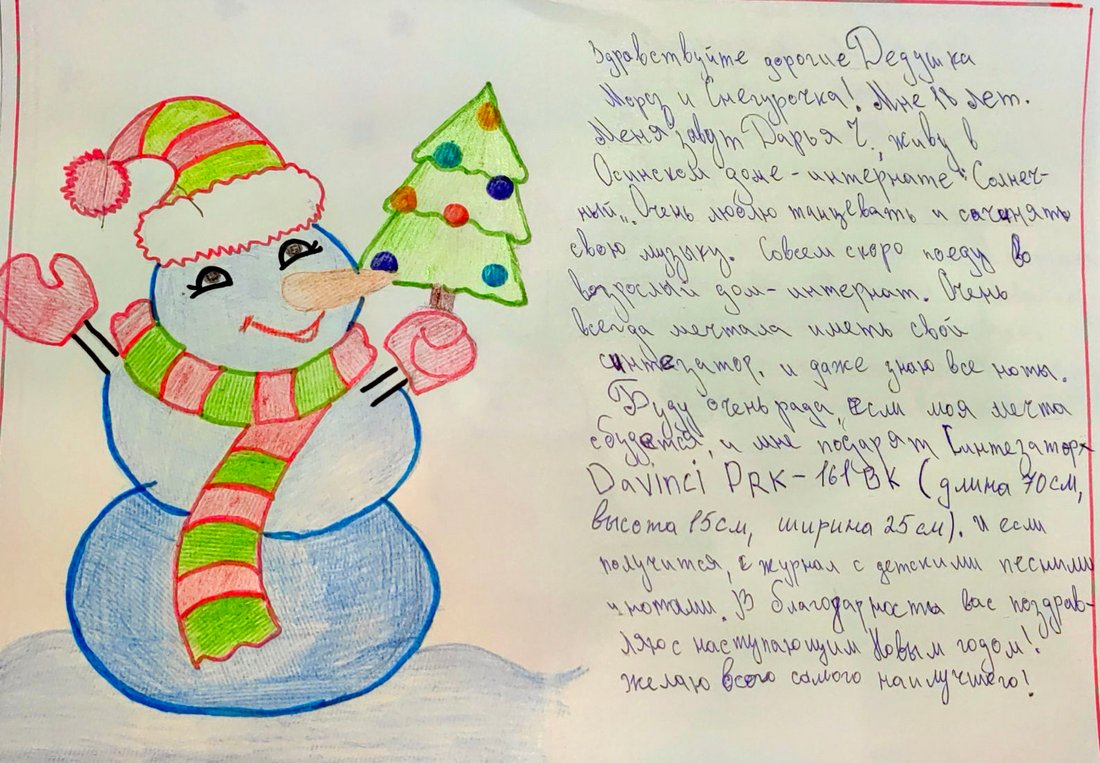 Здравствуйте дорогие Дедушка
Мороз и Снегурочка! Мне 18 лет.
Меня зовут Дарья Ч., живу в
Осинском доме-интернате "Солнеч-
ный". Очень люблю танцевать и сочинять
свою музыку. Совсем скоро поеду во
взрослый дом-интернат. Очень
всегда мечтала иметь свой
синтезатор, и даже знаю все ноты.
Буду очень рада, если моя мечта
сбудется, и мне подарят Синтезатор
DaVinci PRK-161BK (длина 70см,
высота 15см, ширина 25см). И если
получится, журнал с детскими песнями
и нотами. В благодарность вас поздрав-
ляю с наступающим Новым годом!
Желаю всего самого наилучшего!